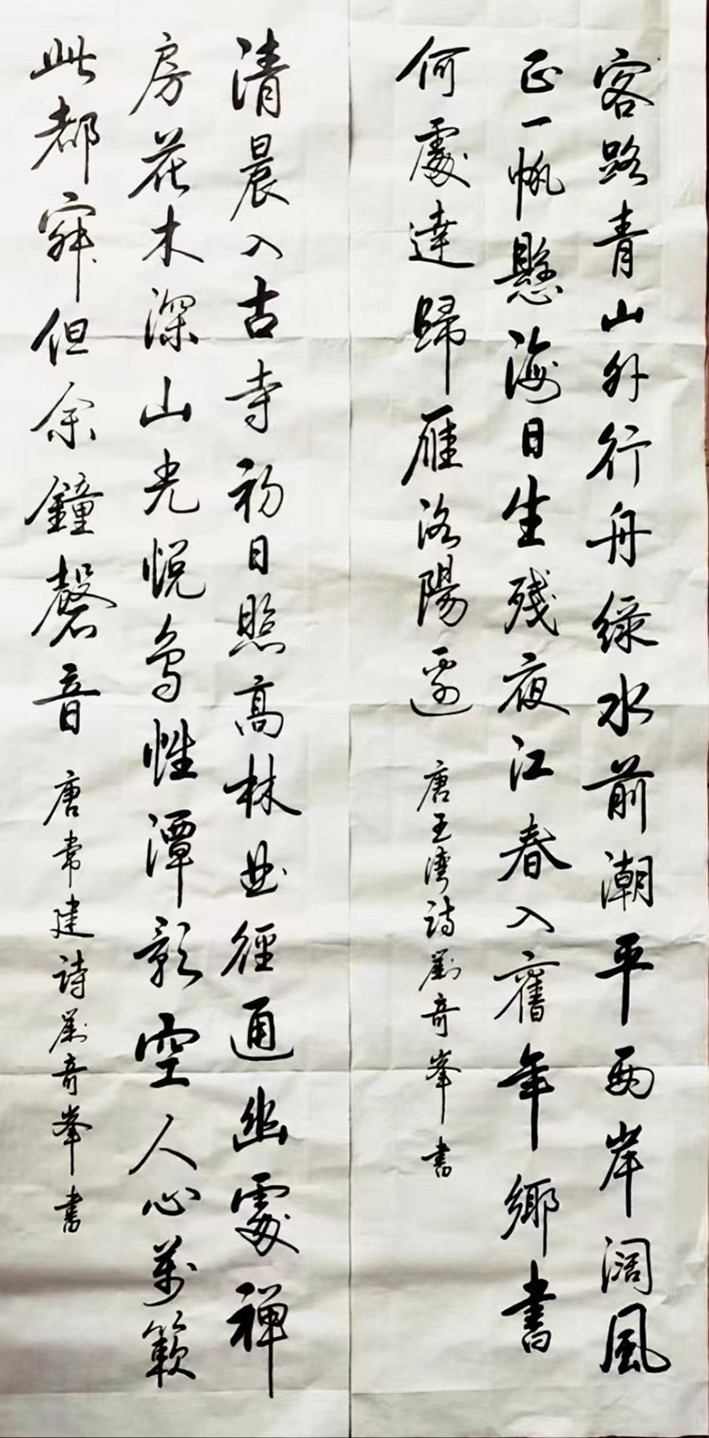 客路青山外行舟緑水前潮平兩岸闊風
正一帆懸海日生残夜江春入舊年鄉書
何處達歸雁洛陽邊
唐王湾詩劉奇峯書
清晨入古寺初日照高林曲徑通幽處禅
房花木深山光悦鸟性潭影空人心万籁
此都寂但余鐘磬音
唐常建詩劉奇峯書